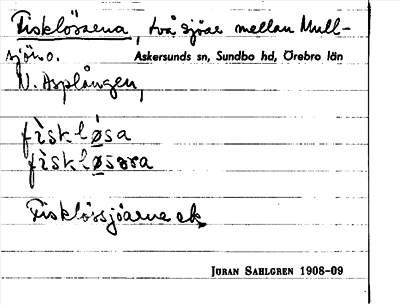 Fisklösarna, två sjöar mellan Mull-
sjön o. Askersunds sn, Sundbo hd, Örebro län
N. Asplången,
fìsklø̀sa
fìsklø̀sɷra
Fisklössjöarna ek.
JÖRAN SAHLGREN 1908-09